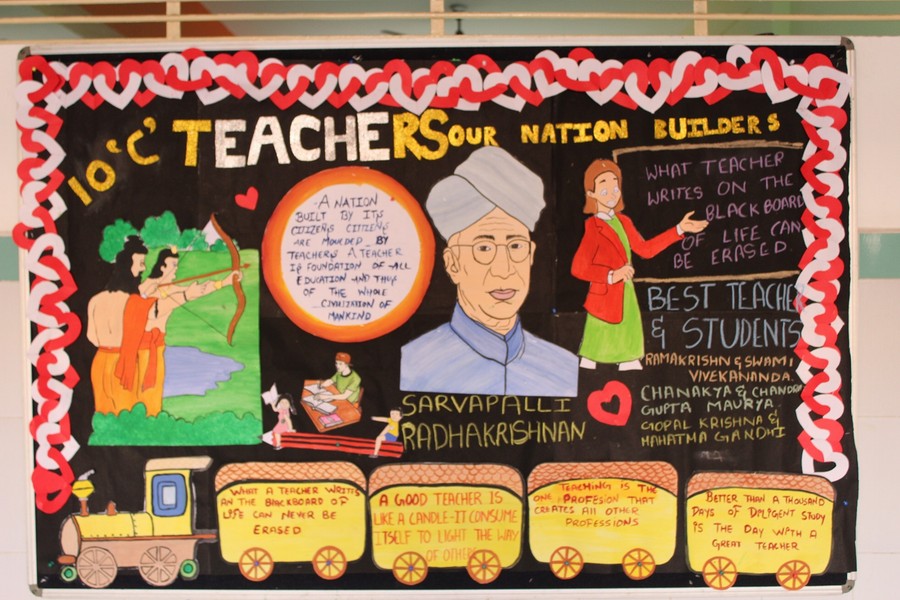 10 'C' TEACHERS OUR NATION BUILDERS
A NATION
BUILT BY ITS
CITIZENS CITIENS
ARE MOULDED BY
TEACHERS A TEACHER
IS FOUNDATION OF ALL
EDUCATION AND THUS
OF THE WHOLE
CIVILIZATION OF
MANKIND
WHAT TEACHER
WRITES ON THE
BLACK BOARD
OF LIFE CAN
BE ERASED
BEST TEACHE
& STUDENTS
RAMAKRISHN & SWAMI
VIVEKANANDA
CHANAKYA & CHANDR
GUPTA MAURYA
GOPAL KRISHNA &
MAHATMA GANDHI
SARVAPALLI
RADHAKRISHNAN
WHAT A TEACHER WRITES
AN THE BLACKBOARD OF
LIFE CAN NEVER BE
ERASED
A GOOD TEACHER IS
LIKE A CANDLE-IT CONSUME
ITSELF TO LIGHT THE WAY
OF OTHERS
TEACHING IS THE
ONE PROFESION THAT
CREATES All OTHER
PROFESSIONS
BETTER THAN A THOUSAND
DAYS OF DILIGENT STUDY
IS THE DAY WITH A
GREAT TEACHER